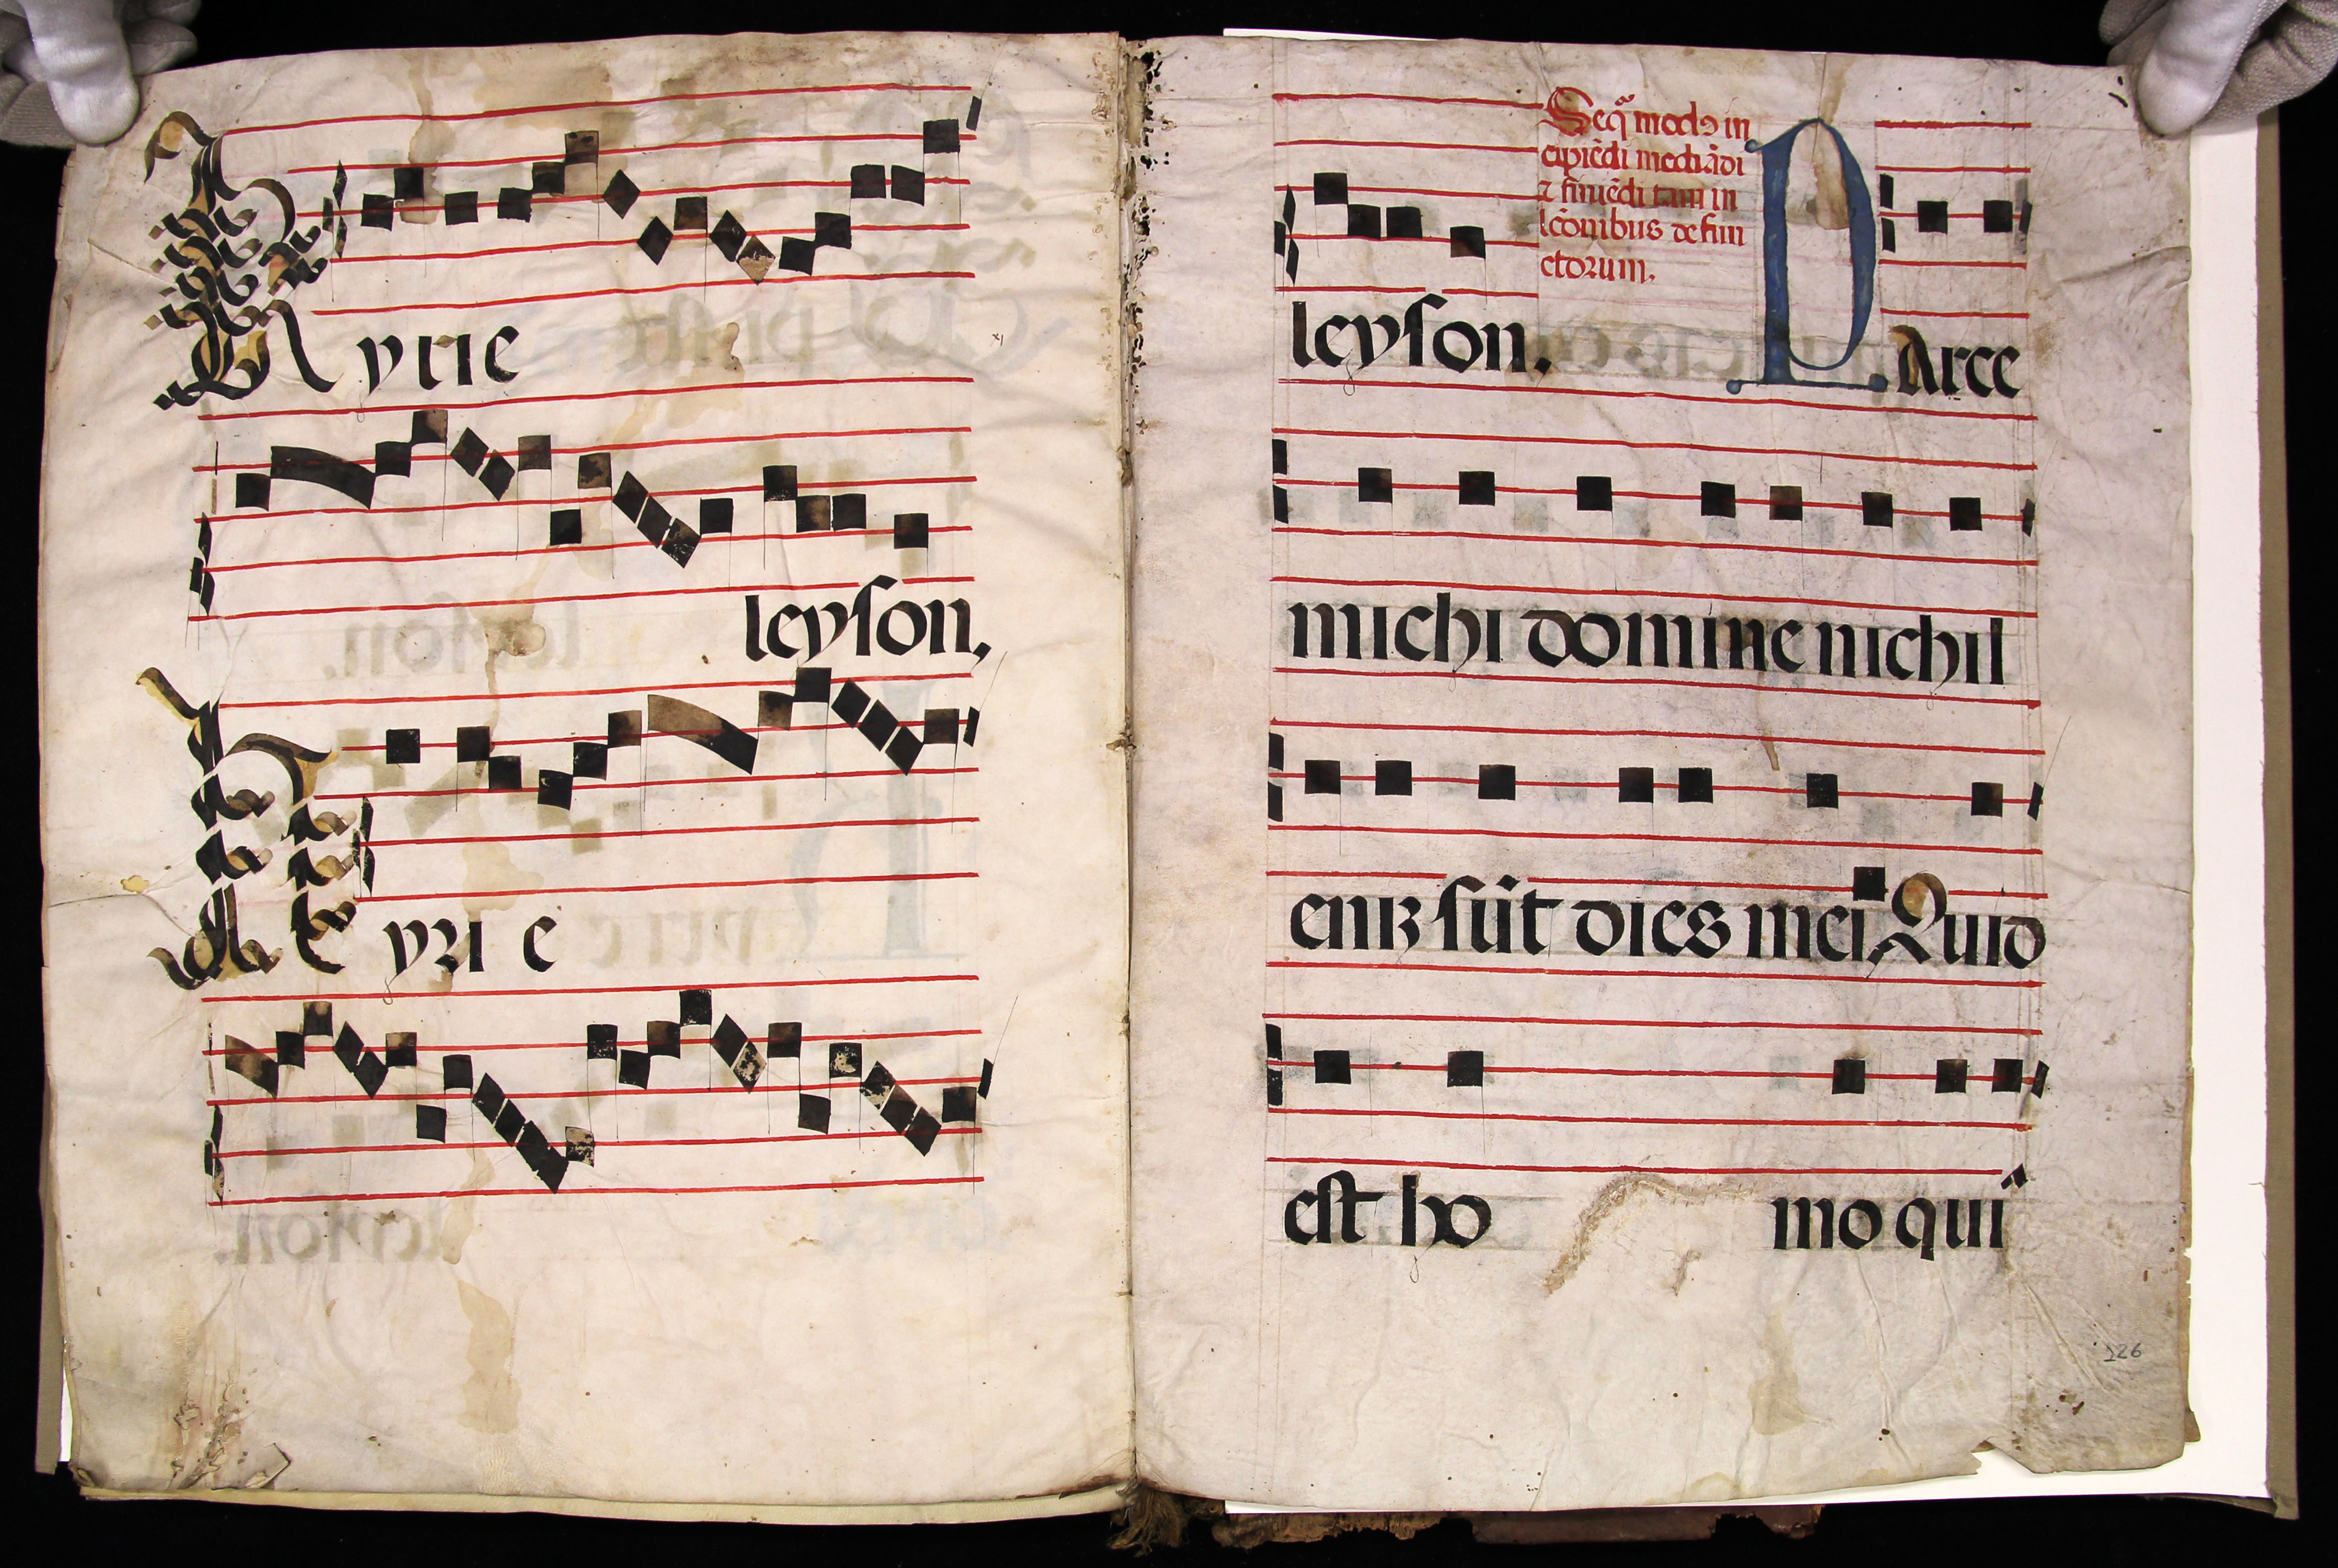 Kyrie
leyson,
Kyrie
leyson.
Seqr̃ modꝰ in
cipiẽdi mediãdi
⁊ finiẽdi tam in
lcõnibus defun
ctorum.
PArce
michi domine nichil
enĩʒ sũt dies mei Quid
est ho mo qui
126